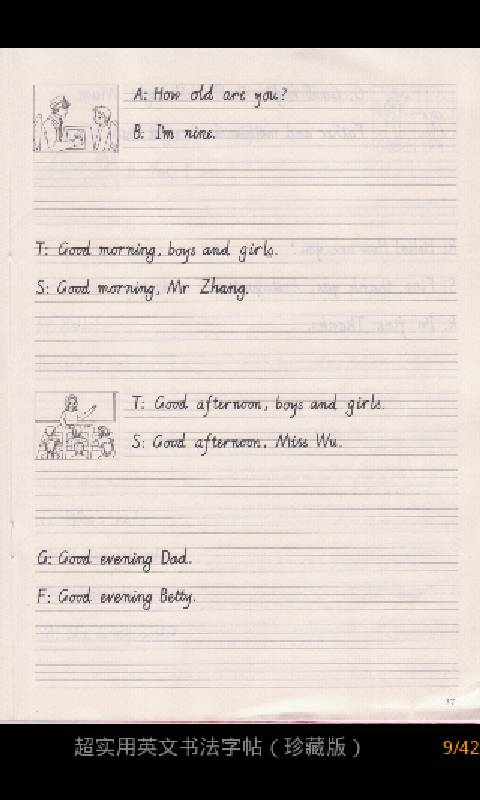 A: How old are you?
B: I'm nine.
T: Good morning, boys and girls.
S: Good morning, Mr Zhang.
T: Good afternoon, boys and girls.
S: Good afternoon, Miss Wu.
G: Good evening Dad.
F: Good evening Betty.
37
超实用英文书法字帖（珍藏版）
9/42